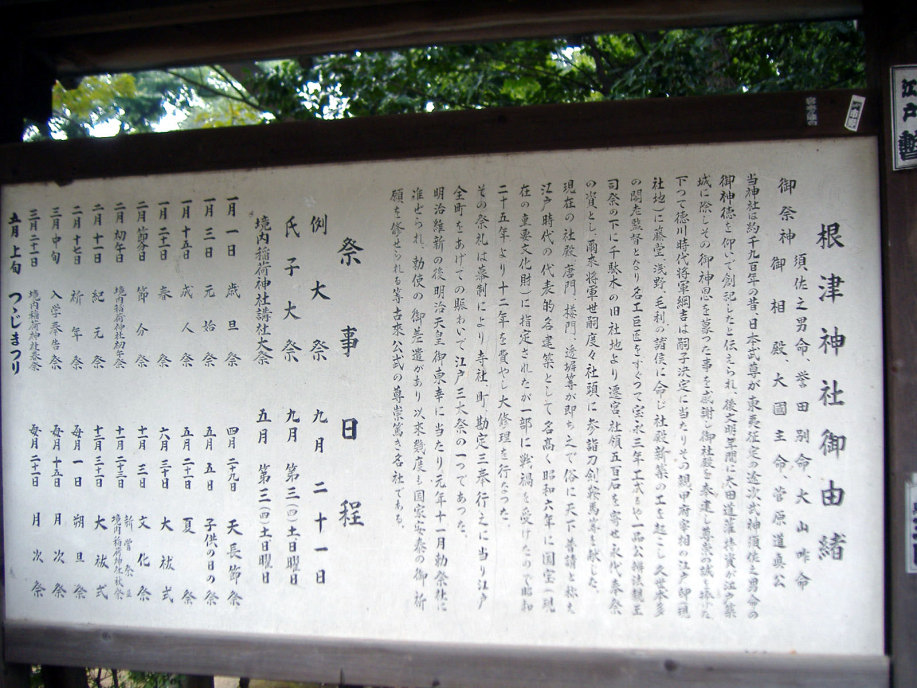 根津神社御由緒
御祭神 須佐之男命、誉田別命、大山咋命
御相殿、大國主命、菅原道真公
当神社は約千九百年の昔、日本武尊が東夷征定の途次武神須佐之男命の
御神徳を仰いで創祀したと伝えられ、後文明年間に太田道灌持資が江戸築
城に際しその御神恩を慕つた事を感謝し御社殿を奉建し尊崇の誠を捧げた
下つて徳川時代将軍綱吉は嗣子決定に当たりその現甲府宰相の江戸邸(現
社地)に藤堂、浅野、毛利の諸侯に命じ社殿新築の工を起こし久世本多
の閣老監督となり名工巨匠をすぐつて宝永三年工成るや一品公辨法親王
司祭の下に千駄木の旧社地より遷宮、社領五百石を寄せ永代奉祭
の資とし、爾来将軍世嗣度々社頭に参詣刀剣鞍馬等を献じた
現在の社殿唐門、楼門、透塀等が即ち之で俗に天下普請と称え
江戸時代の代表的名建築として名高く昭和六年に国宝(現
在の重要文化財)に指定されたが一部に戦禍を受けたので昭和
二十五年より十二年を費やし大修理を行なつた。
その祭礼は幕制により寺社、町、勘定三奉行之に当り江戸
全町をあげての賑わいで江戸三大祭の一つであった。
明治維新の後明治天皇御東幸に当たり元年十一月勅祭社に
准ぜられ、勅使の御差遣があり以来幾度も国家安泰の御祈
願を修せられる等古来公武の尊崇篤き名社である。
祭事日程
例大祭 九月二十一日
氏子大祭 九月 第三(四)土日曜日
境内稲荷神社講社大祭 五月 第三(四)土日曜日
一月一日 歳旦祭 四月二十九日 天長節祭
一月三日 元始祭 五月五日 子供の日の祭
一月十五日 成人祭 五月二十一日 夏祭
一月二十一日 春祭 六月三十日 大祓式
二月節分 節分祭 十一月三日 文化祭
二月初午日 境内稲荷神社初午祭 十一月二十三日 新嘗祭並境内稲荷神社秋祭
二月十一日 紀元祭 十二月三十一日 大祓式
二月十七日 祈年祭 毎月一日 朔旦祭
三月中旬 入学奉告祭 毎月十五日 月次祭
三月二十一日 境内稲荷神社春祭 毎月二十一日 月次祭
五月上旬 つゝじまつり